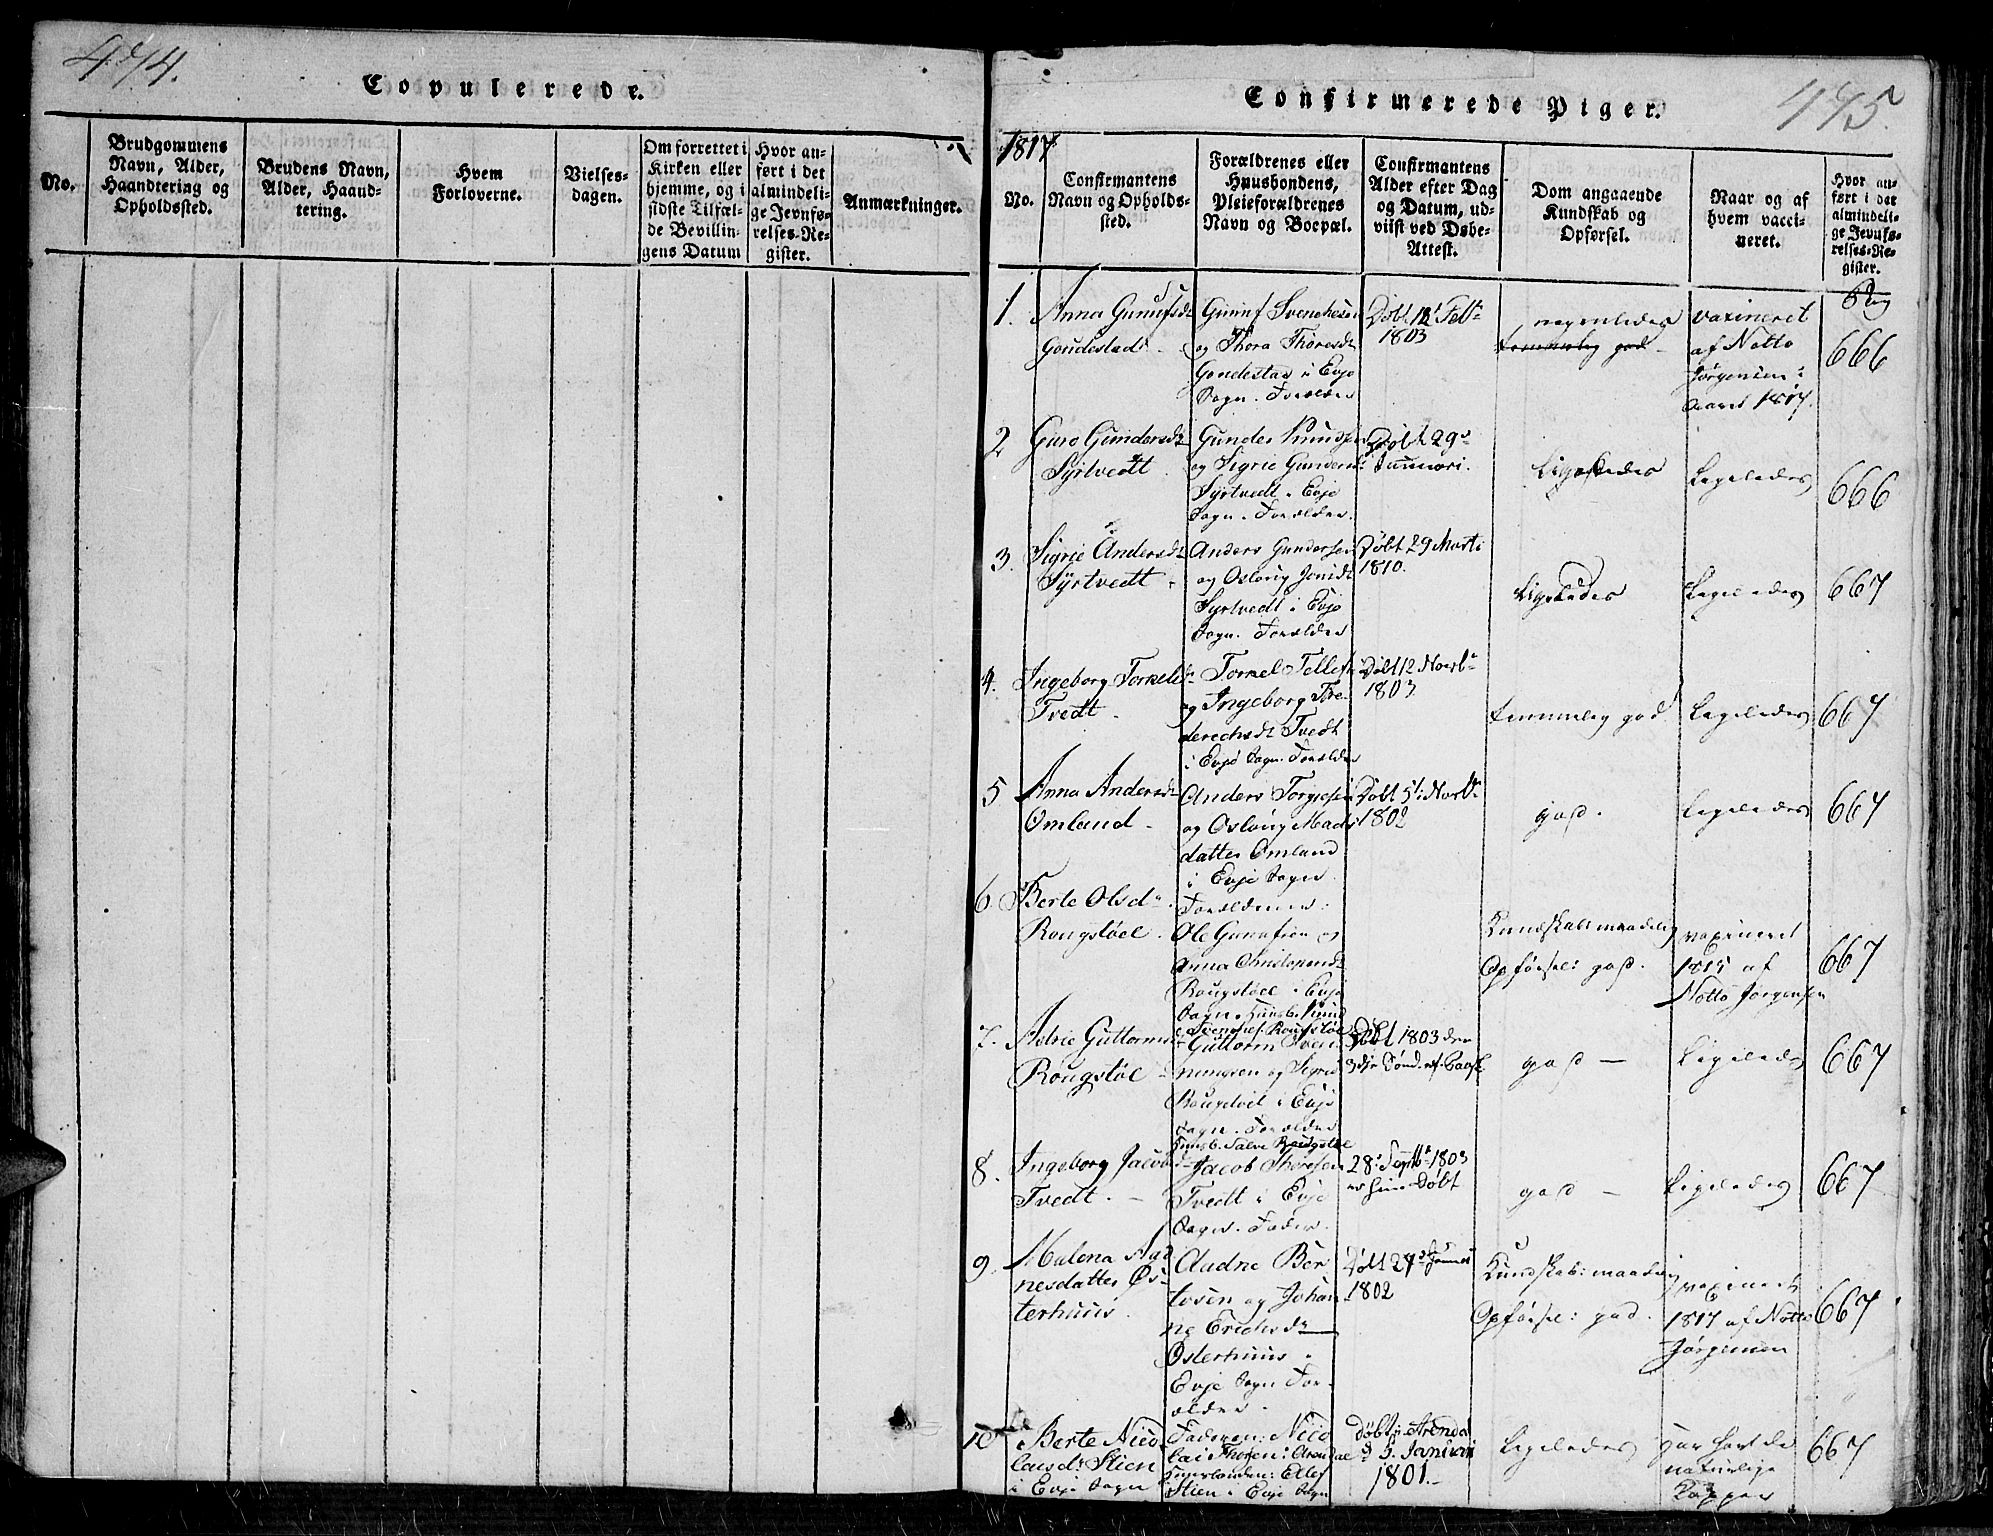 474.
Copulerede.
No.
Brudgommens
Navn, Alder,
Haandtering og
Opholdssted.
Brudens Navn,
Alder, Haand-
tering.
Hvem
Forloverne.
Vielses-
dagen.
Om forrettet i
Kirken eller
hjemme, og i
sidste Tilfæl-
de Bevillin-
gens Datum
Hvor an-
ført i det
almindeli-
ge Jevnfø-
relses-Re-
gister.
Anmærkninger.
475.
Confirmerede Piger.
1817
No.
Confirmantens
Navn og Opholds-
sted.
Forældrenes eller
Huusbondens,
Pleieforældrenes
Navn og Boepæl.
Confirmantens
Alder efter Dag
og Datum, ud-
viist ved Døbe-
Attest.
Dom angaaende
Kundskab og
Opførsel.
Naar og af
hvem vacci-
neret.
Hvor an-
ført i det
almindeli-
ge Jevnfø-
relses-Re-
gister.
Pag
1.
Anna Gunufsdt
Goudestad
Gunuf Svenchesen
og Thora Thoresdt
Goudestad i Evje
Sogn. Forældre
Døbt 12 Febr
1803
temmelig god
vaxineret
af Notto
Jørgensen i
Aaret 1817.
666
2
Guro Gundersdt
Syrtvedt
Gunder Knudsen
og Sigrie Gundersdt
Syrtvedt i Evje
Sogn. Forældre.
Døbt 29
Januari.
Ligeledes
Ligeledes
666
3.
Sigrie Andersdt
Syrtvedt
Anders Gundersen
og Osloug Jonsdt
Syrtvedt i Evje
Sogn. Forældre
Døbt 29 Marti
1810.
Ligeledes
Ligeledes
667
4.
Ingeborg Torkelsdr
Tvedt.
Torkel Tellefs
og Ingeborg Fre-
derechsdt Tvedt
i Evje Sogn. Forældre
Døbt 12 Novbr
1803
temmelig god
Ligeledes
667
5
Anna Andersdt
Omland
Anders Torgiesen
og Osloug Mads
datter Omland
i Evje Sogn.
Forældrene.
Døbt 5t Novbr
1802
god.
Ligeledes
667
6.
Berte Olsdr.
Rougstøel.
Ole Gunufsen og
Anna
Rougstøel i Evje
Sogn. Huusb. Knud
Svensen Rougstøe
Kundskab: maadelig
Opførsel: god.
vaxineret
1815 af
Notto Jørgensen
667
7.
Asbrie Guttorms
Rougstøe
Guttorm Sven
nungsen og Sigrid
Rougstoel i Evje
Sogn. Forældre
Huusb. Salve Rougstøe
Døbt 1803 den
3die Sønd. ef. Paask
god
Ligeledes
667
8.
Ingeborg Jacobsdr
Tvedt.
Jacob Thoresen
Tvedt i Evje
Sogn. Fader.
28 Septbr 1803
er hun Døbt
god
Ligeledes
667
9.
Malena Aad
nesdatter Øs-
terhuus.
Aadne Ber
tosen og Johan
ne Erichsdr
Østerhuus i
Evje Sogn For-
ældre.
Døbt 27 Junii
1802
Kundskab: maadelig
Opførsel: god.
vaxineret
1817 af Notto
Jørgensen
667
10
Berte Nico
laisdr Stien
i Evje Sogn
Faderen: Nico
lai Thorsen: Arendal
Huusbonden: Ellef
Stien i Evje Sogn
Døbt i Arendal
d 5. Januari
1801.
Ligeledes
Har havt de
naturlige
Kopper
667